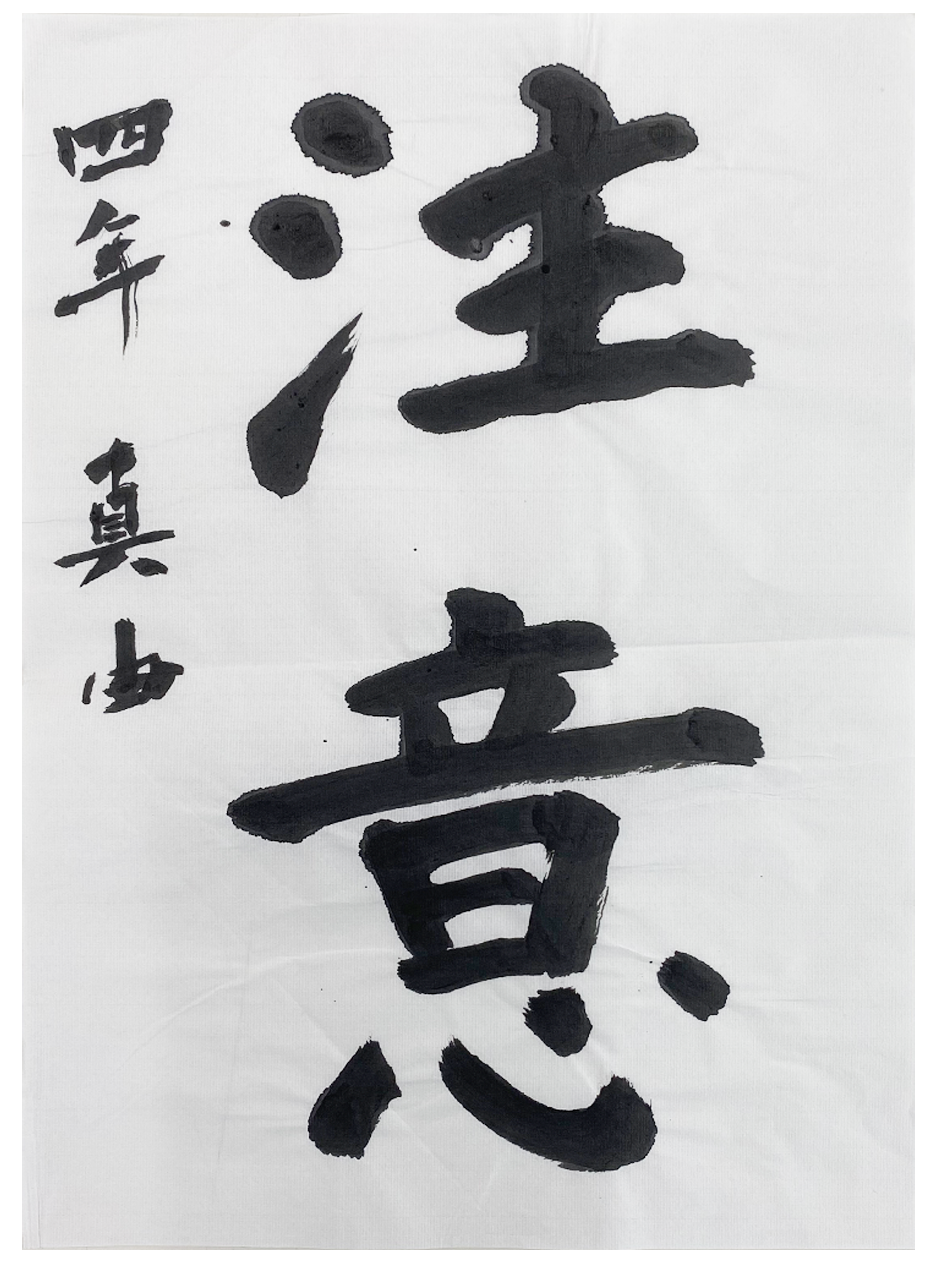 注意
四年 真由